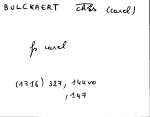 BULCKAERT chrs (carel)
fs carel
(1716) 327, 144vo
, 147